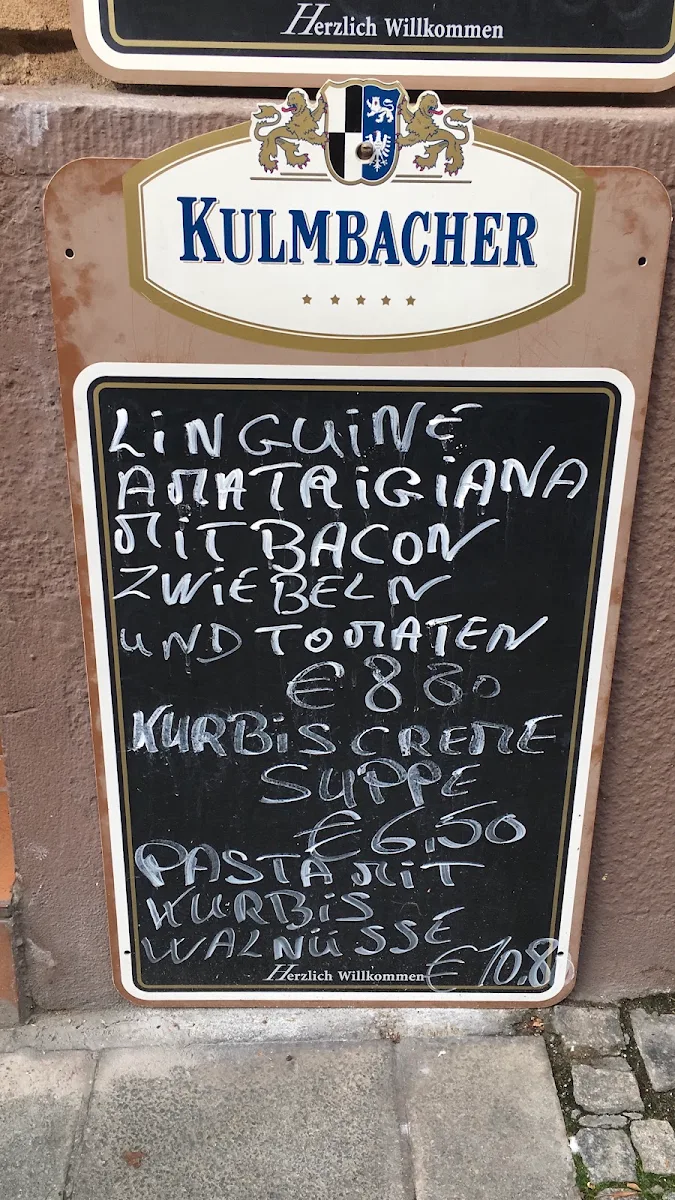 Herzlich Willkommen
KULMBACHER
LINGUINE
AMATRIGIANA
MIT BACON
ZWIEBELN
UND TOMATEN
€ 8 80
KURBIS CREME
SUPPE
€ 6,50
PASTA MIT
KURBIS
WALNÜSSE
Herzlich Willkommen € 10.80